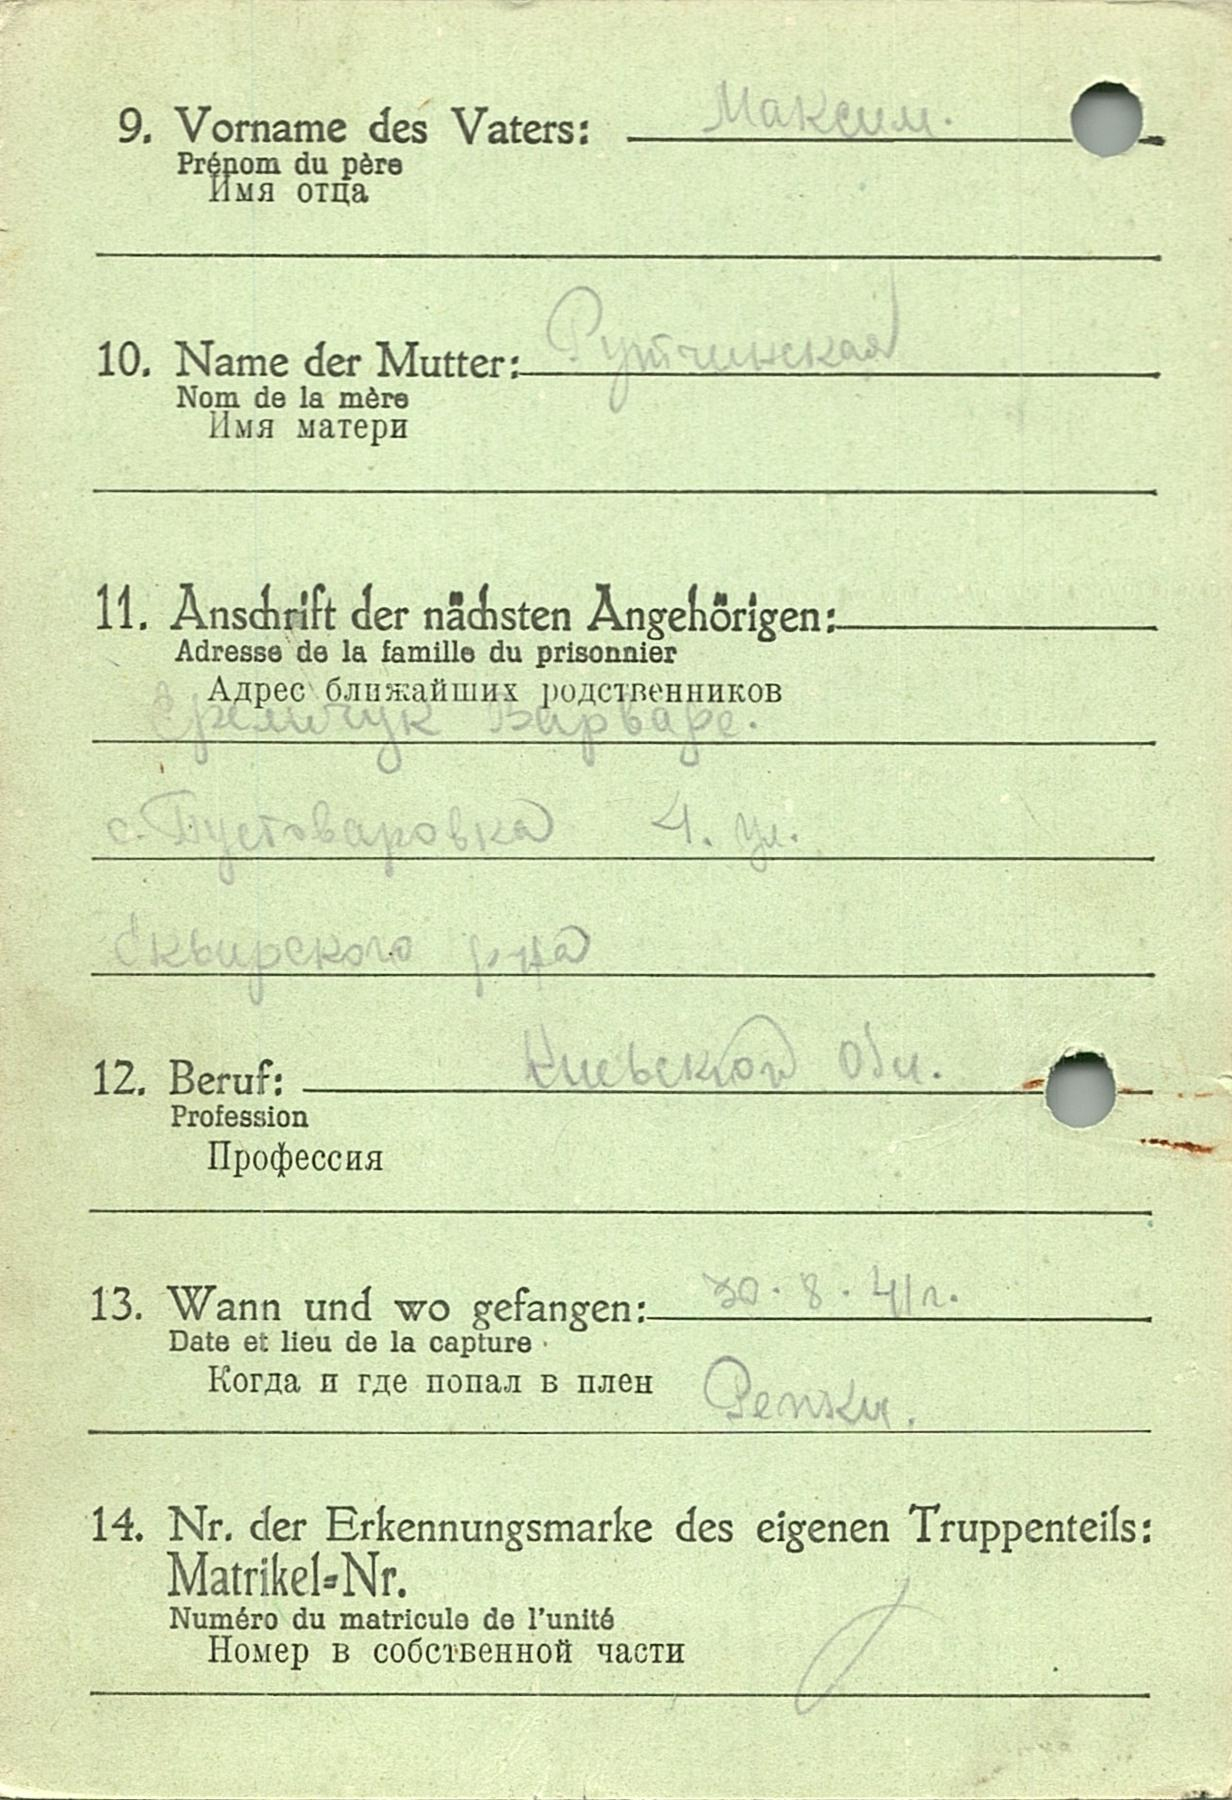 9. Vorname des Vaters: Максим.
Prénom du père
Имя отца
10. Name der Mutter: Рутчинская
Nom de la mère
Имя матери
11. Anschrift der nächsten Angehörigen:
Adresse de la famille du prisonnier
Адрес ближайших родственников
Еремчук Варваре.
с. Пустоваровка 4. ул.
Сквирского р-на
12. Beruf: Киевской Обл.
Profession
Профессия
13. Wann und wo gefangen: 30.8.41г.
Date et lieu de la capture
Когда и где попал в плен Репки.
14. Nr. der Erkennungsmarke des eigenen Truppenteils:
Matrikel-Nr.
Numéro du matricule de l'unité
Номер в собственной части